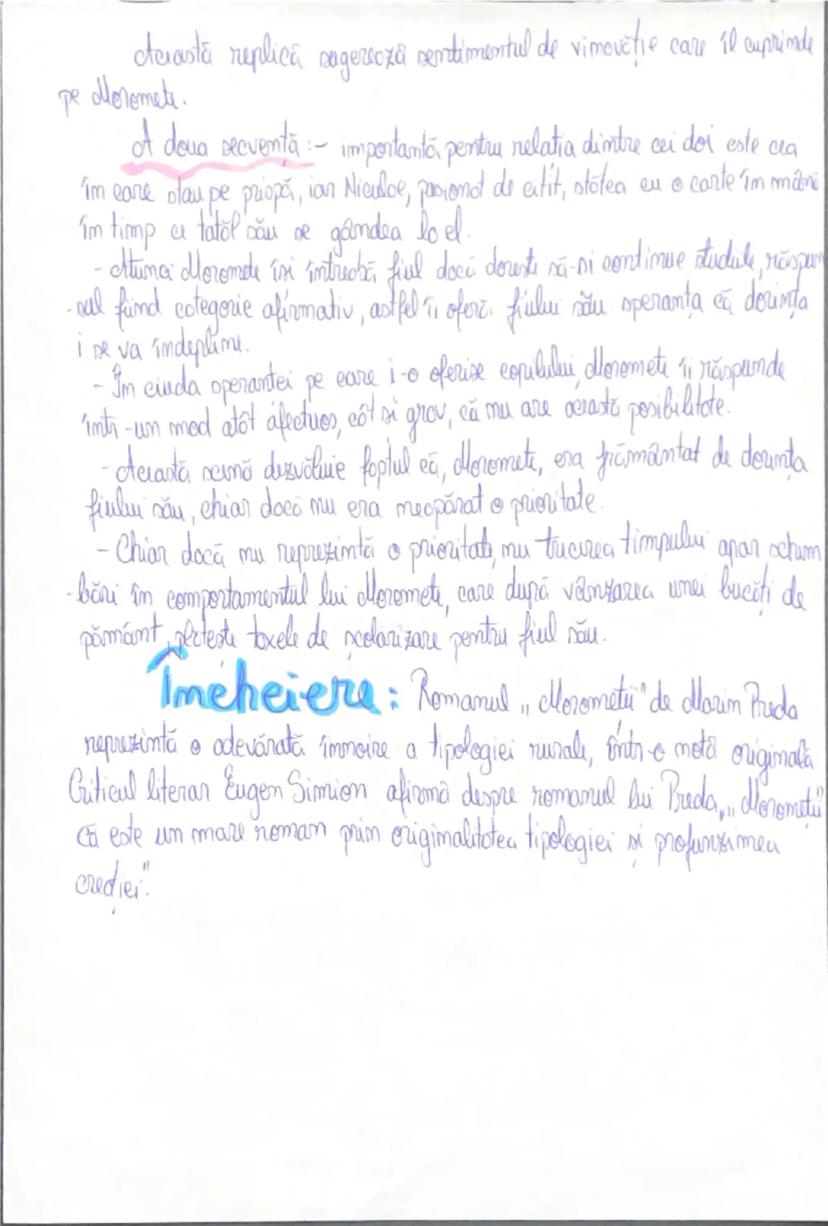 Această replică sugerează sentimentul de vinovăție care îl cuprinde
pe Moromete.
A doua secvență :- importantă pentru relația dintre cei doi este cea
în care stau pe prispă, iar Niculae, pasionat de citit, stătea cu o carte în mână
în timp ce tatăl său se gândea la el.
- Atunci Moromete își întreabă fiul dacă dorește să-și continue studiile, răspun
-sul fiind categoric afirmativ, astfel îi oferă fiului său speranța că dorința
i se va îndeplini.
- În ciuda speranței pe care i-o oferise copilului, Moromete îi răspunde
într-un mod atât afectuos, cât și grav, că nu are această posibilitate.
- Această scenă dezvăluie faptul că, Moromete, era frământat de dorința
fiului său, chiar dacă nu era neapărat o prioritate.
- Chiar dacă nu reprezintă o prioritate, nu trecerea timpului apar schim
-bări în comportamentul lui Moromete, care după vânzarea unei bucăți de
pământ, plătește taxele de școlarizare pentru fiul său.
Încheiere: Romanul „Moromeții" de Marin Preda
reprezintă o adevărată înnoire a tipologiei rurale, într-o notă originală
Criticul literar Eugen Simion afirmă despre romanul lui Preda, „Moromeții"
că este un mare roman prin originalitatea tipologiei și profunzimea
creației".